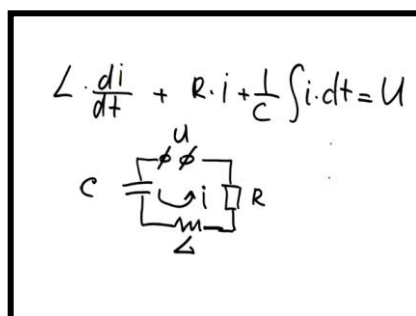 L · di/dt + R · i + 1/C ∫ i · dt = U
U
C i R
L